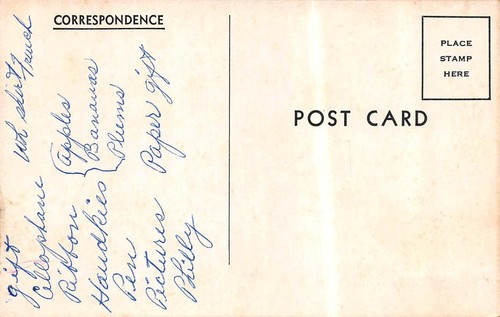 CORRESPONDENCE
PLACE
STAMP
HERE
POST CARD
gift
Cellophane
Ribbon
Handkies
Pen
Pictures
Philly
Apples
Bananas
Plums
Paper gift